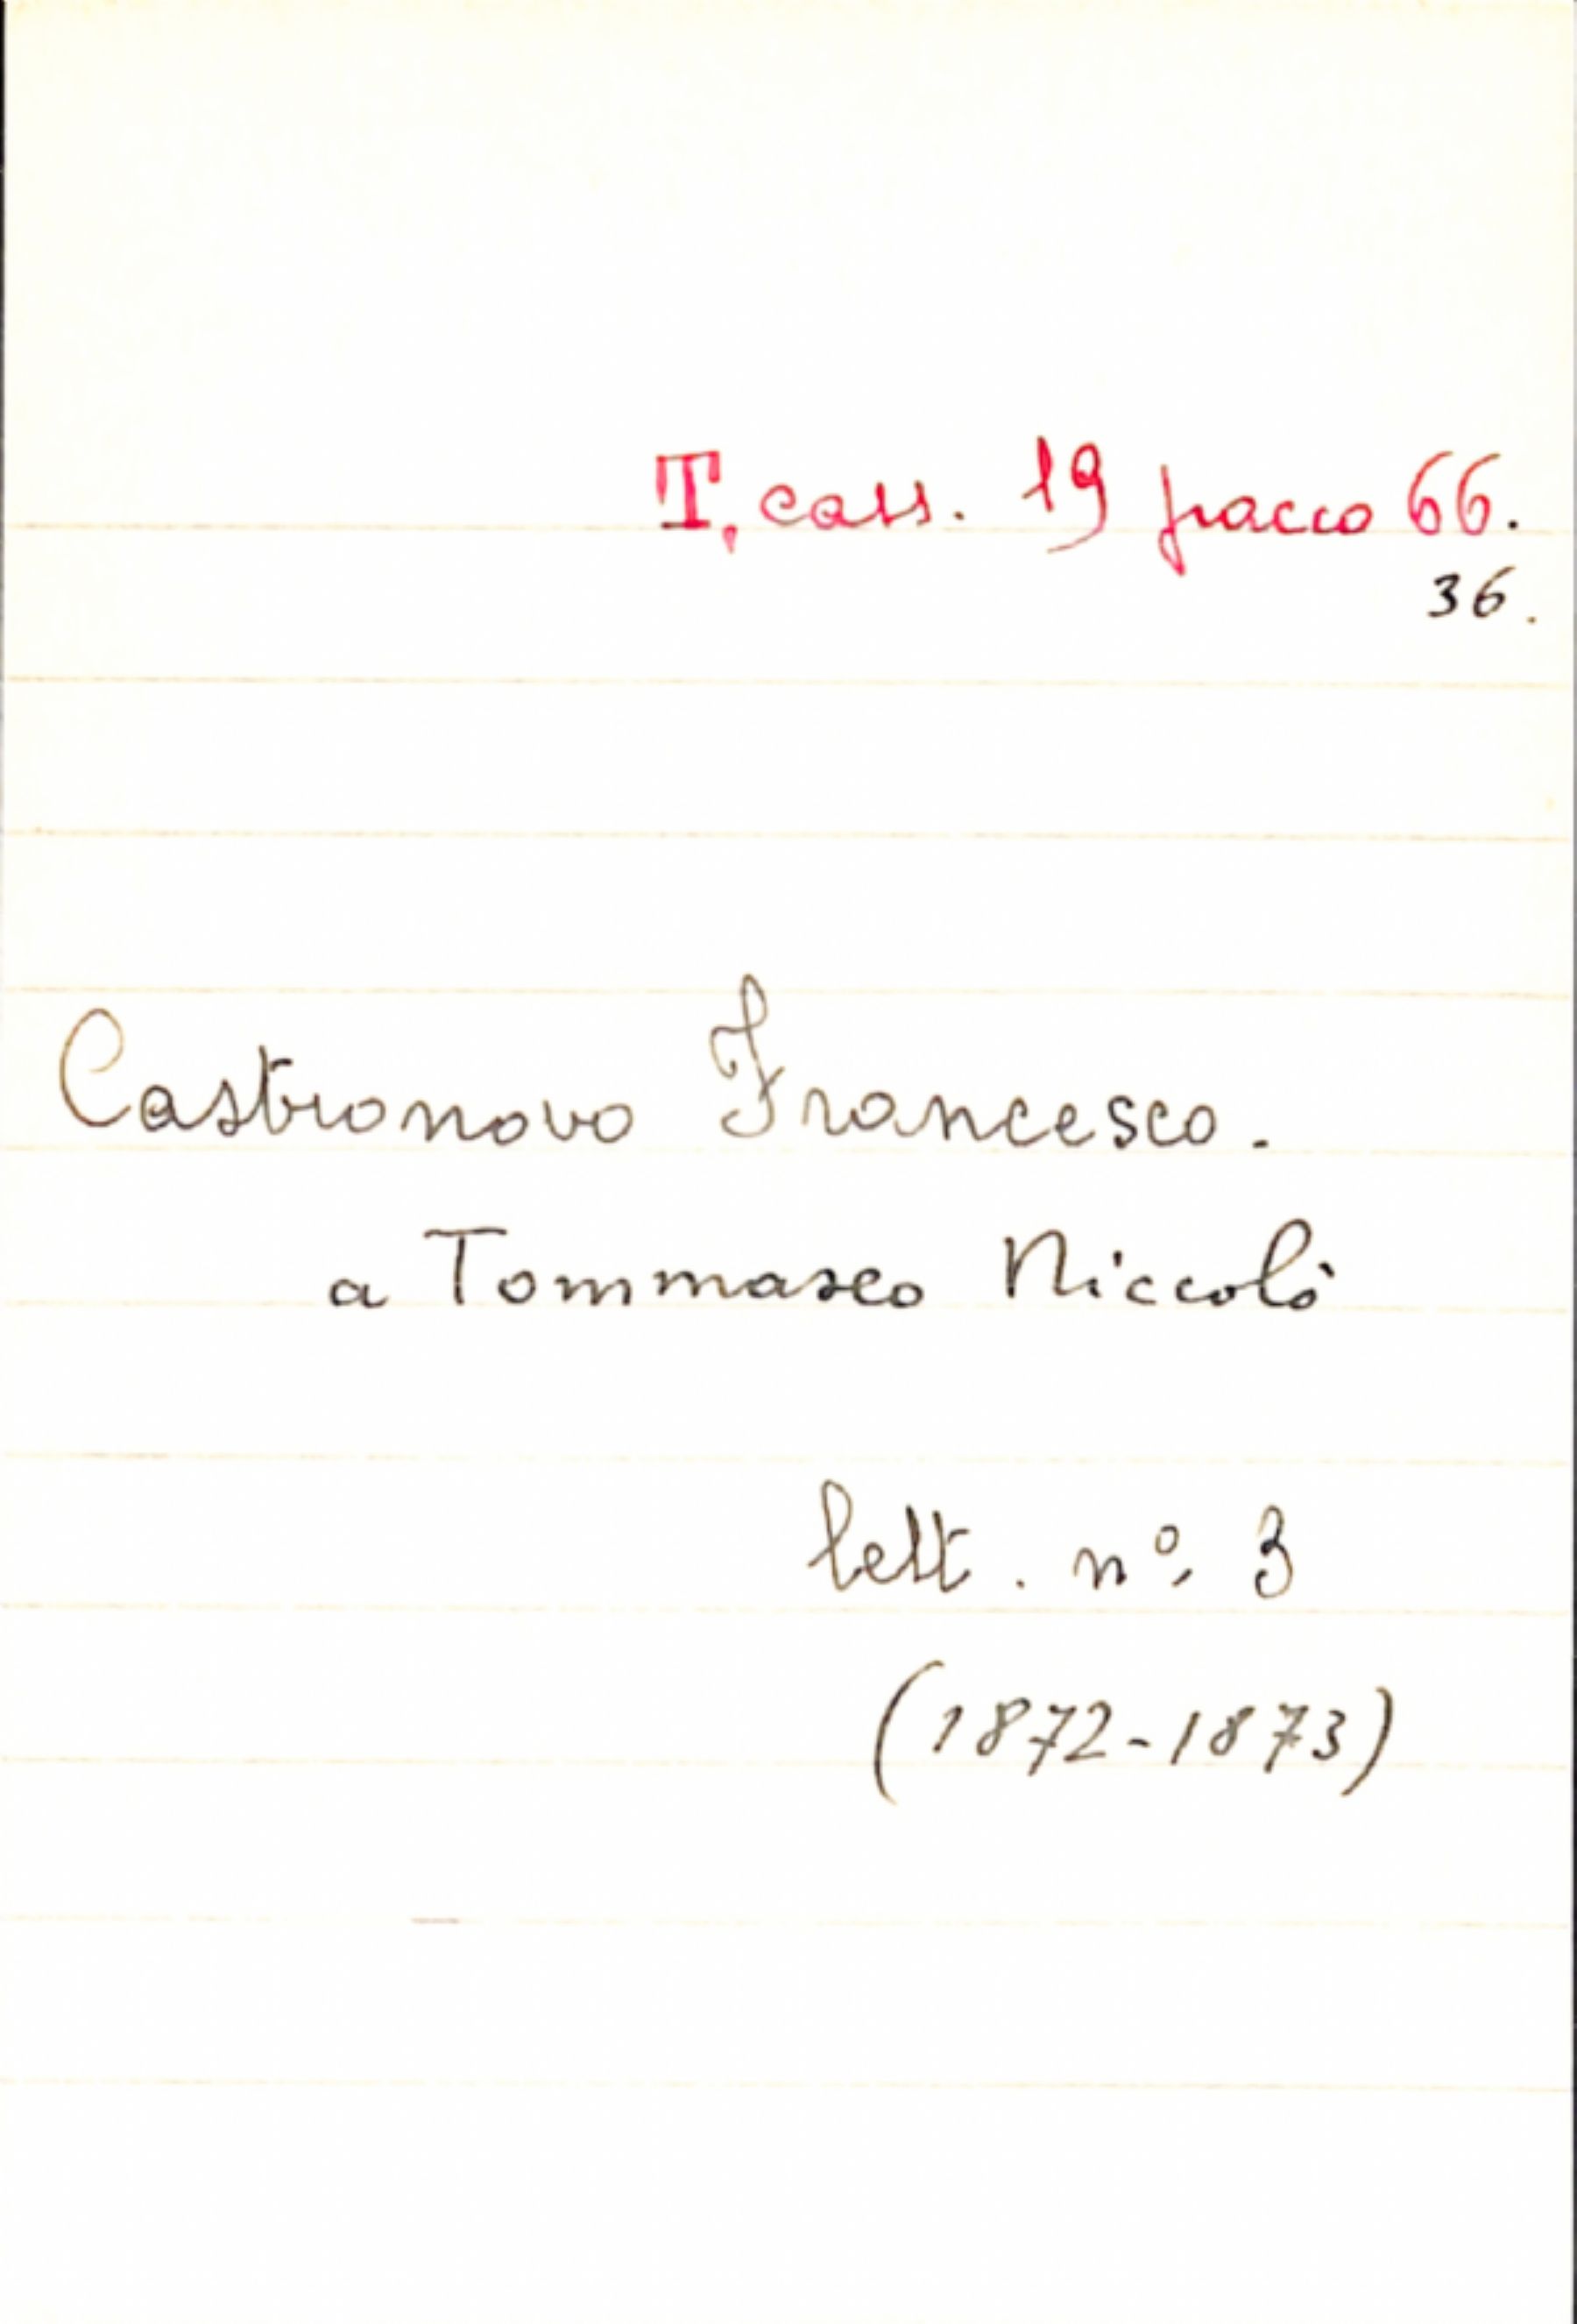 T. cass. 19 pacco 66.
36.
Castronovo Francesco.
a Tommaseo Niccolò
lett. nº. 3
(1872-1873)